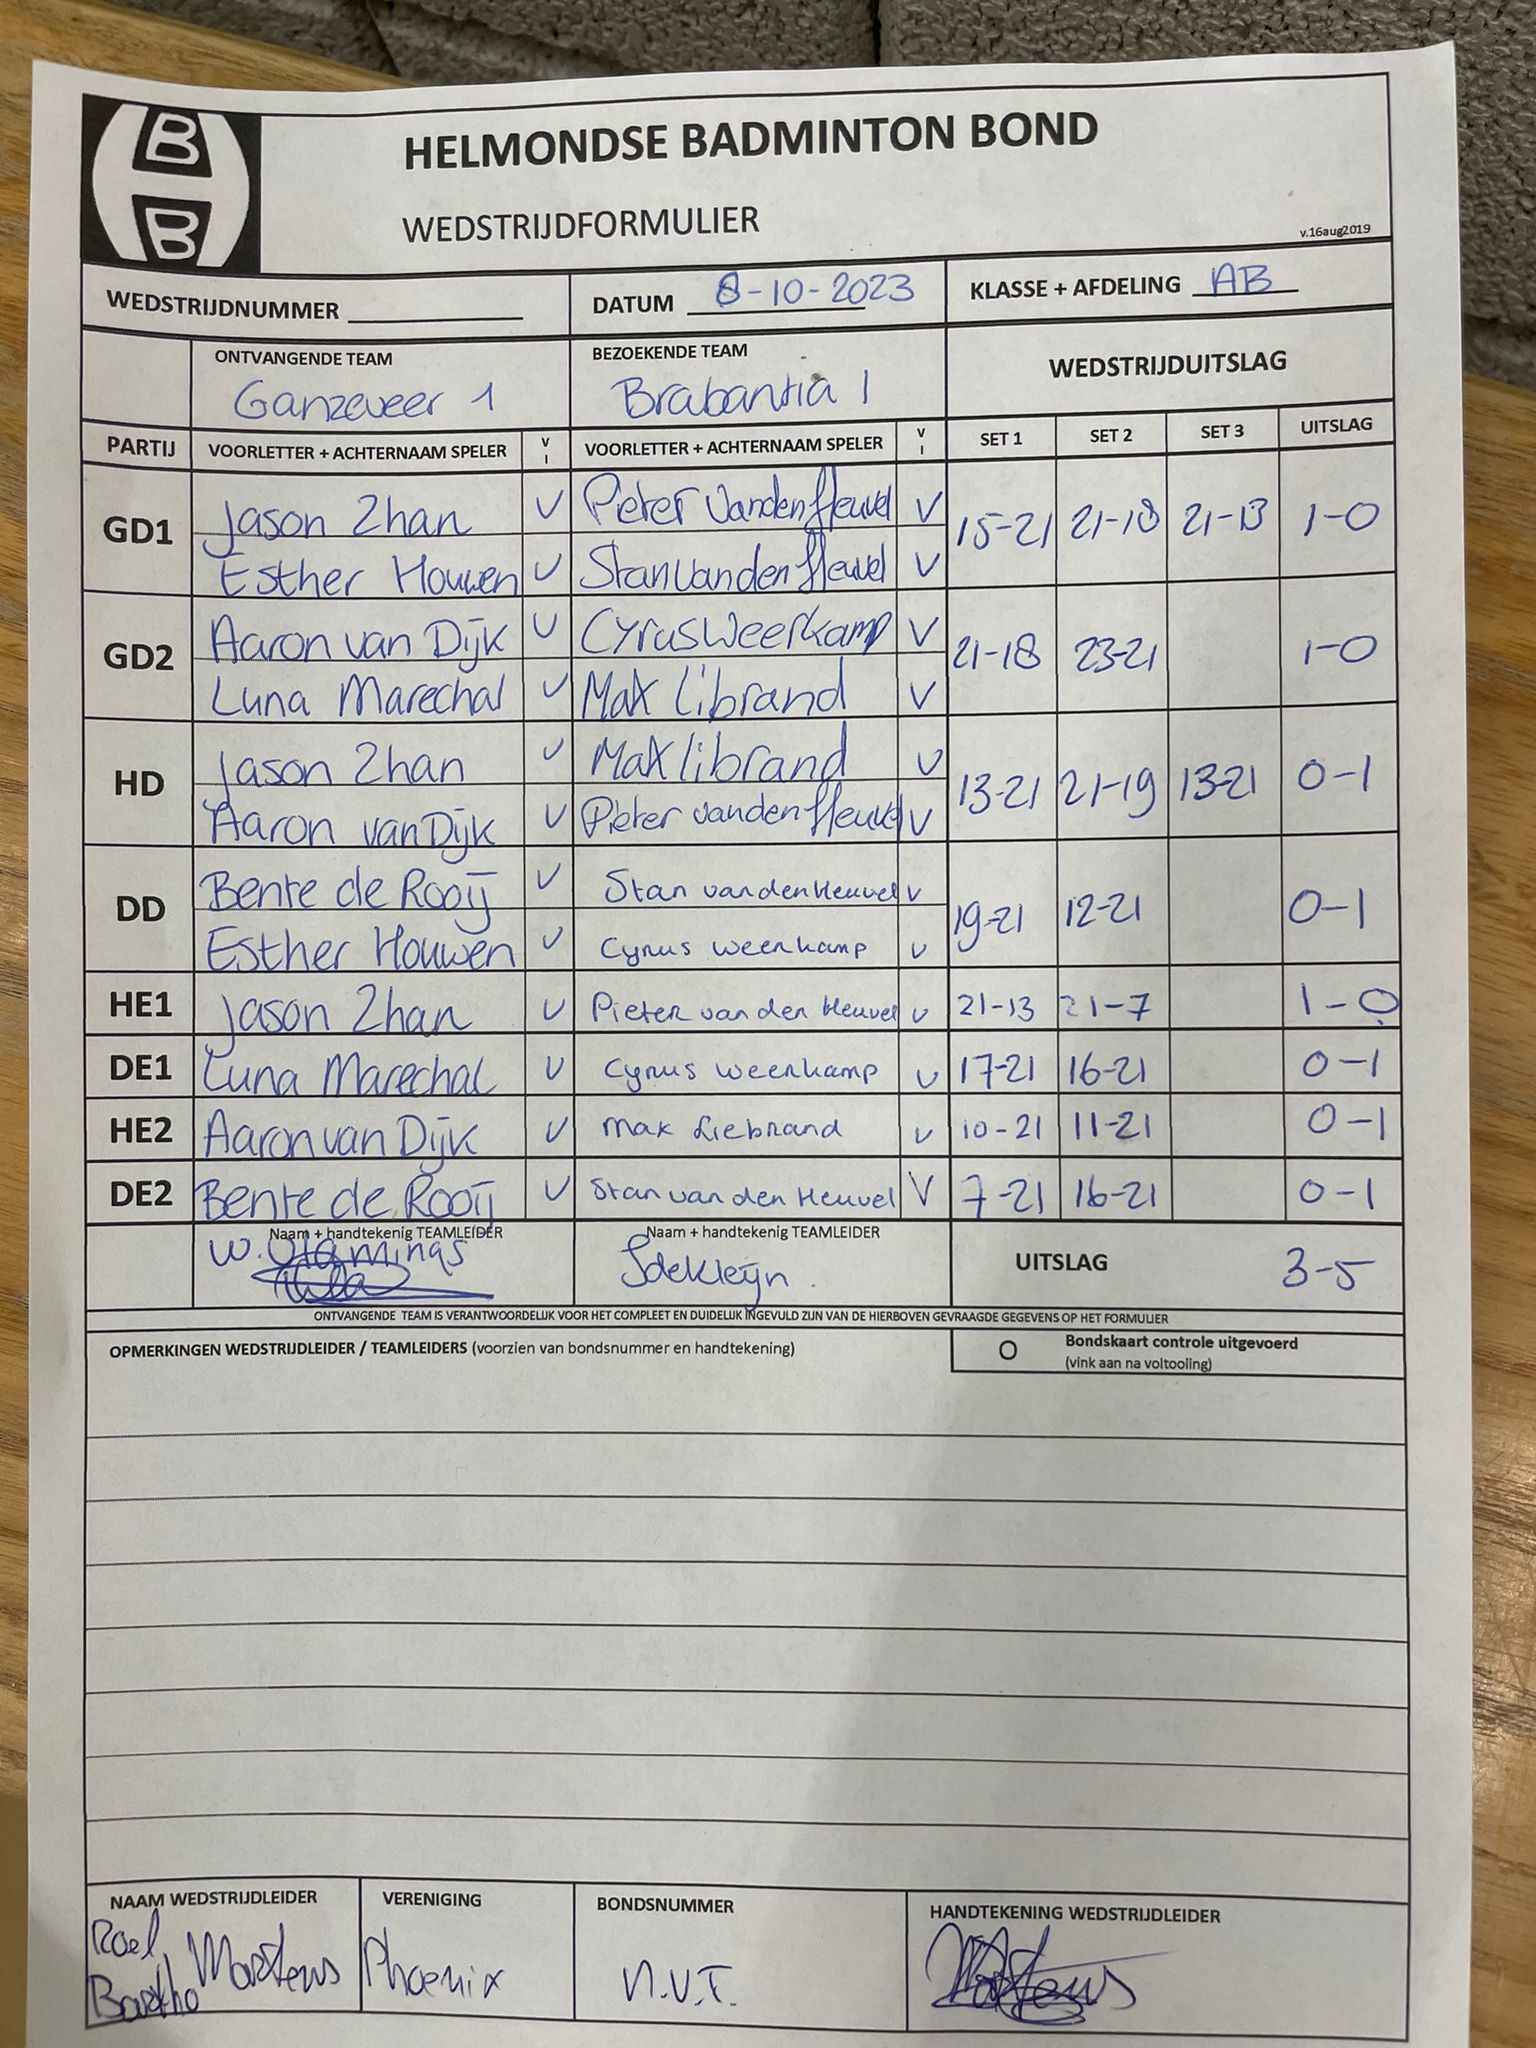 B
B
HELMONDSE BADMINTON BOND
WEDSTRIJDFORMULIER
v.16aug2019
WEDSTRIJDNUMMER DATUM 8-10-2023 KLASSE + AFDELING AB
ONTVANGENDE TEAM BEZOEKENDE TEAM WEDSTRIJDUITSLAG
Ganzeveer 1 Brabantia 1
PARTIJ VOORLETTER + ACHTERNAAM SPELER V I VOORLETTER + ACHTERNAAM SPELER V I SET 1 SET 2 SET 3 UITSLAG
GD1 Jason Zhan V Pieter van den Heuvel V 15-21 21-18 21-13 1-0
Esther Houwen V Stan van den Heuvel V
GD2 Aaron van Dijk V Cyrus Weerkamp V 21-18 23-21 1-0
Luna Marechal V Max Librand V
HD Jason Zhan V Max Librand V 13-21 21-19 13-21 0-1
Aaron van Dijk V Pieter van den Heuvel V
DD Bente de Rooij V Stan van den Heuvel V 19-21 12-21 0-1
Esther Houwen V Cyrus Weerkamp V
HE1 Jason Zhan V Pieter van den Heuvel V 21-13 21-7 1-0
DE1 Luna Marechal V Cyrus Weerkamp V 17-21 16-21 0-1
HE2 Aaron van Dijk V Max Liebrand V 10-21 11-21 0-1
DE2 Bente de Rooij V Stan van den Heuvel V 7-21 16-21 0-1
Naam + handtekenig TEAMLEIDER Naam + handtekenig TEAMLEIDER
W. SdeKleijn UITSLAG 3-5
ONTVANGENDE TEAM IS VERANTWOORDELIJK VOOR HET COMPLEET EN DUIDELIJK INGEVULD ZIJN VAN DE HIERBOVEN GEVRAAGDE GEGEVENS OP HET FORMULIER
OPMERKINGEN WEDSTRIJDLEIDER / TEAMLEIDERS (voorzien van bondsnummer en handtekening) O Bondskaart controle uitgevoerd
(vink aan na voltooiing)
NAAM WEDSTRIJDLEIDER VERENIGING BONDSNUMMER HANDTEKENING WEDSTRIJDLEIDER
Roel
Bartho Martens Phoenix n.v.t.